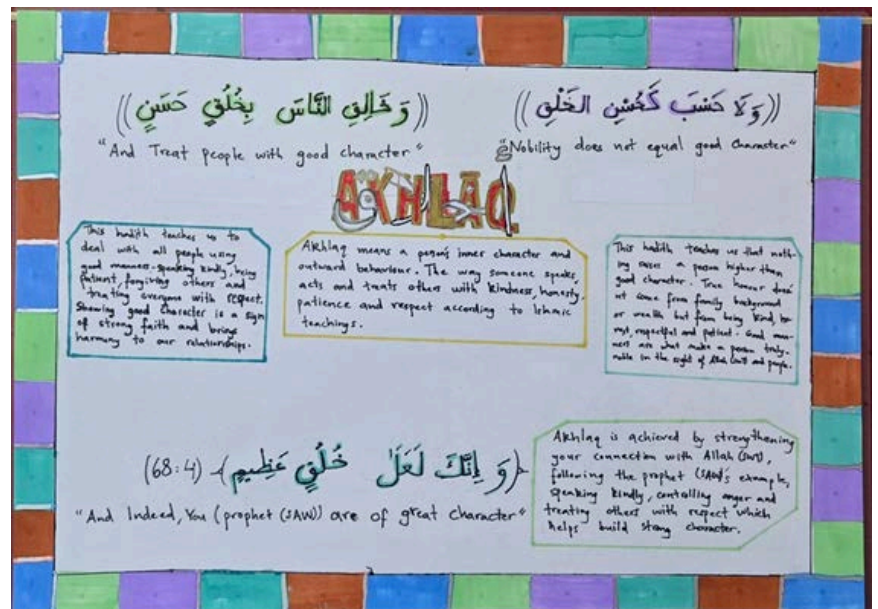 ((وَلَا حَسَبَ كَحُسْنِ الخَلْقِ))
"Nobility does not equal good Character"
((وَ خَالِقِ النَّاسَ بِخُلُقٍ حَسَنٍ))
"And Treat people with good character"
AKHLAQ
This hadith teaches us to
deal with all people using
good manners-speaking kindly, being
patient, forgiving others and
treating everyone with respect.
Showing good character is a sign
of strong faith and brings
harmony to our relationships.
Akhlaq means a person's inner character and
outward behaviour. The way someone speaks,
acts and treats others with kindness, honesty,
patience and respect according to Islamic
teachings.
This hadith teaches us that noth-
ing raises a person higher than
good character. True honour does
not come from family background
or wealth but from being kind, ho-
nest, respectful and patient. Good man-
ners are what make a person truly
noble in the sight of Allah (swt) and people.
وَ إِنَّكَ لَعَلَىٰ خُلُقٍ عَظِيمٍ (68:4)
"And Indeed, You (prophet (SAW)) are of great character"
Akhlaq is achieved by strengthening
your connection with Allah (swt),
following the prophet (SAW)'s example,
speaking kindly, controlling anger and
treating others with respect which
helps build strong character.